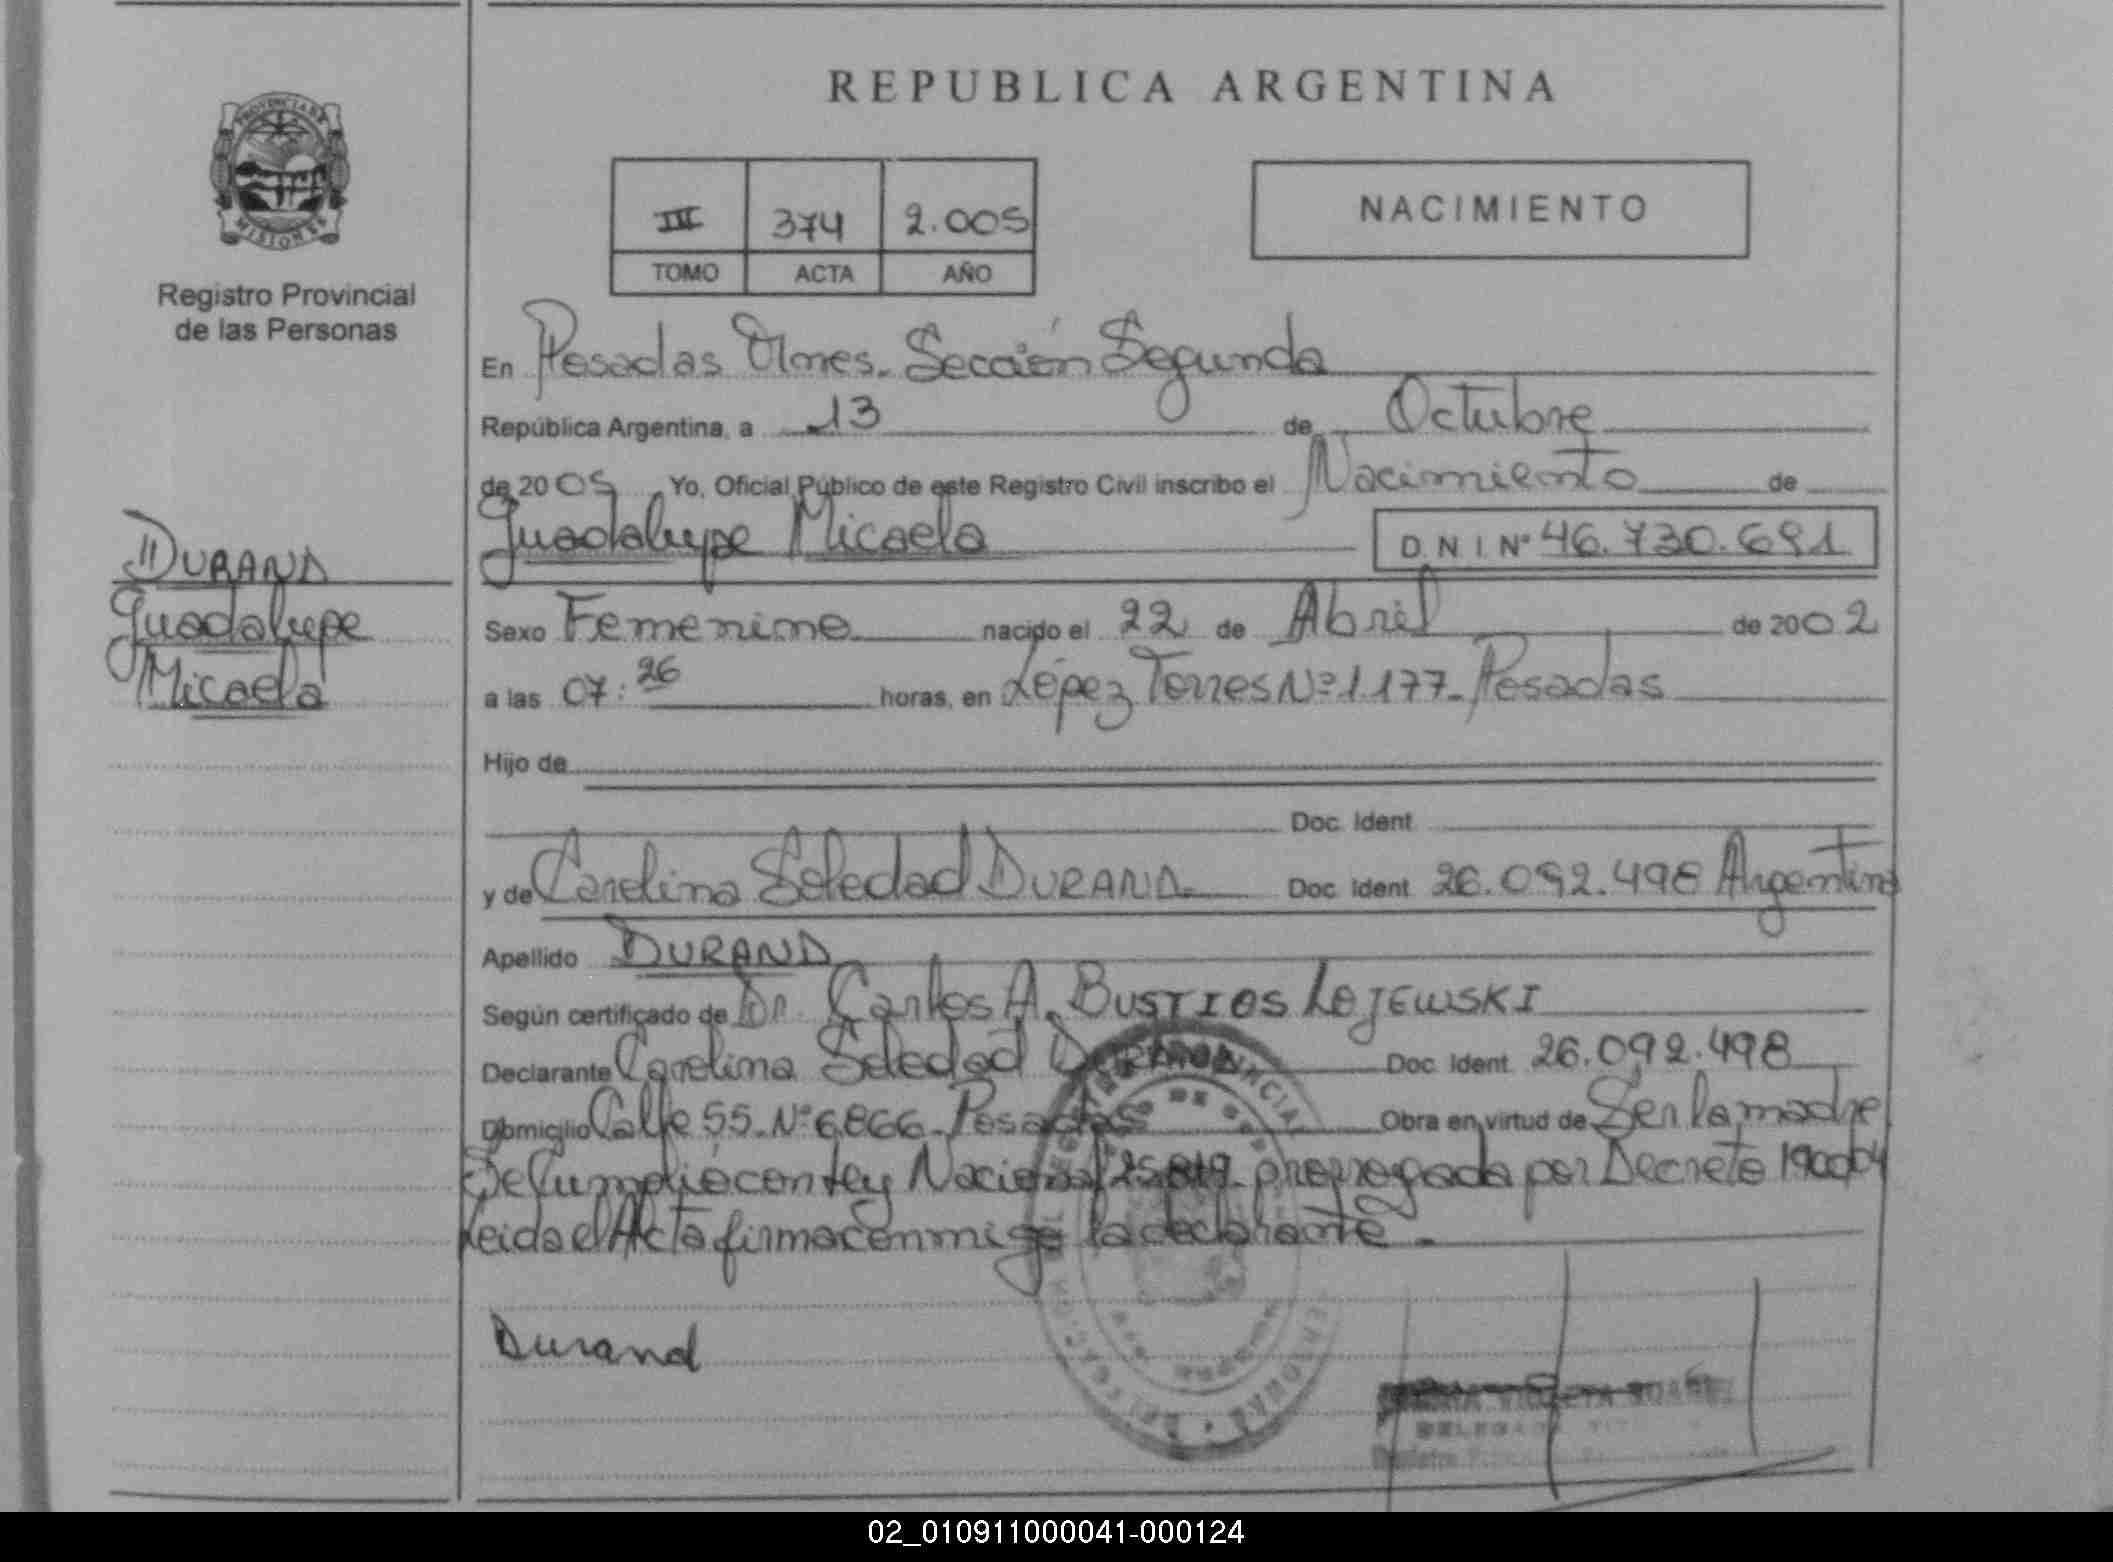 REPUBLICA ARGENTINA
PROVINCIA DE
MISIONES
Registro Provincial
de las Personas
III 374 2.005
TOMO ACTA AÑO
NACIMIENTO
En Posadas Mnes. Sección Segunda
República Argentina, a 13 de Octubre
de 2005 Yo, Oficial Público de este Registro Civil inscribo el Nacimiento de
Guadalupe Micaela D.N.I. Nº 46.730.691
DURAND
Guadalupe
Micaela
Sexo Femenino nacido el 22 de Abril de 2002
a las 07:26 horas, en López Torres Nº 1177- Posadas
Hijo de
Doc. Ident
y de Carolina Soledad DURAND Doc. Ident 26.092.498 Argentina
Apellido DURAND
Según certificado de Dr. Carlos A. BUSTIOS LOJEWSKI
Declarante Carolina Soledad DURAND Doc. Ident. 26.092.498
Domicilio Calle 55- Nº 6866- Posadas Obra en virtud de Ser la madre
Se Cumplió con Ley Nacional 25.819- prorrogada por Decreto
Leida el Acta firma conmigo la declarante.
Durand
02_010911000041-000124